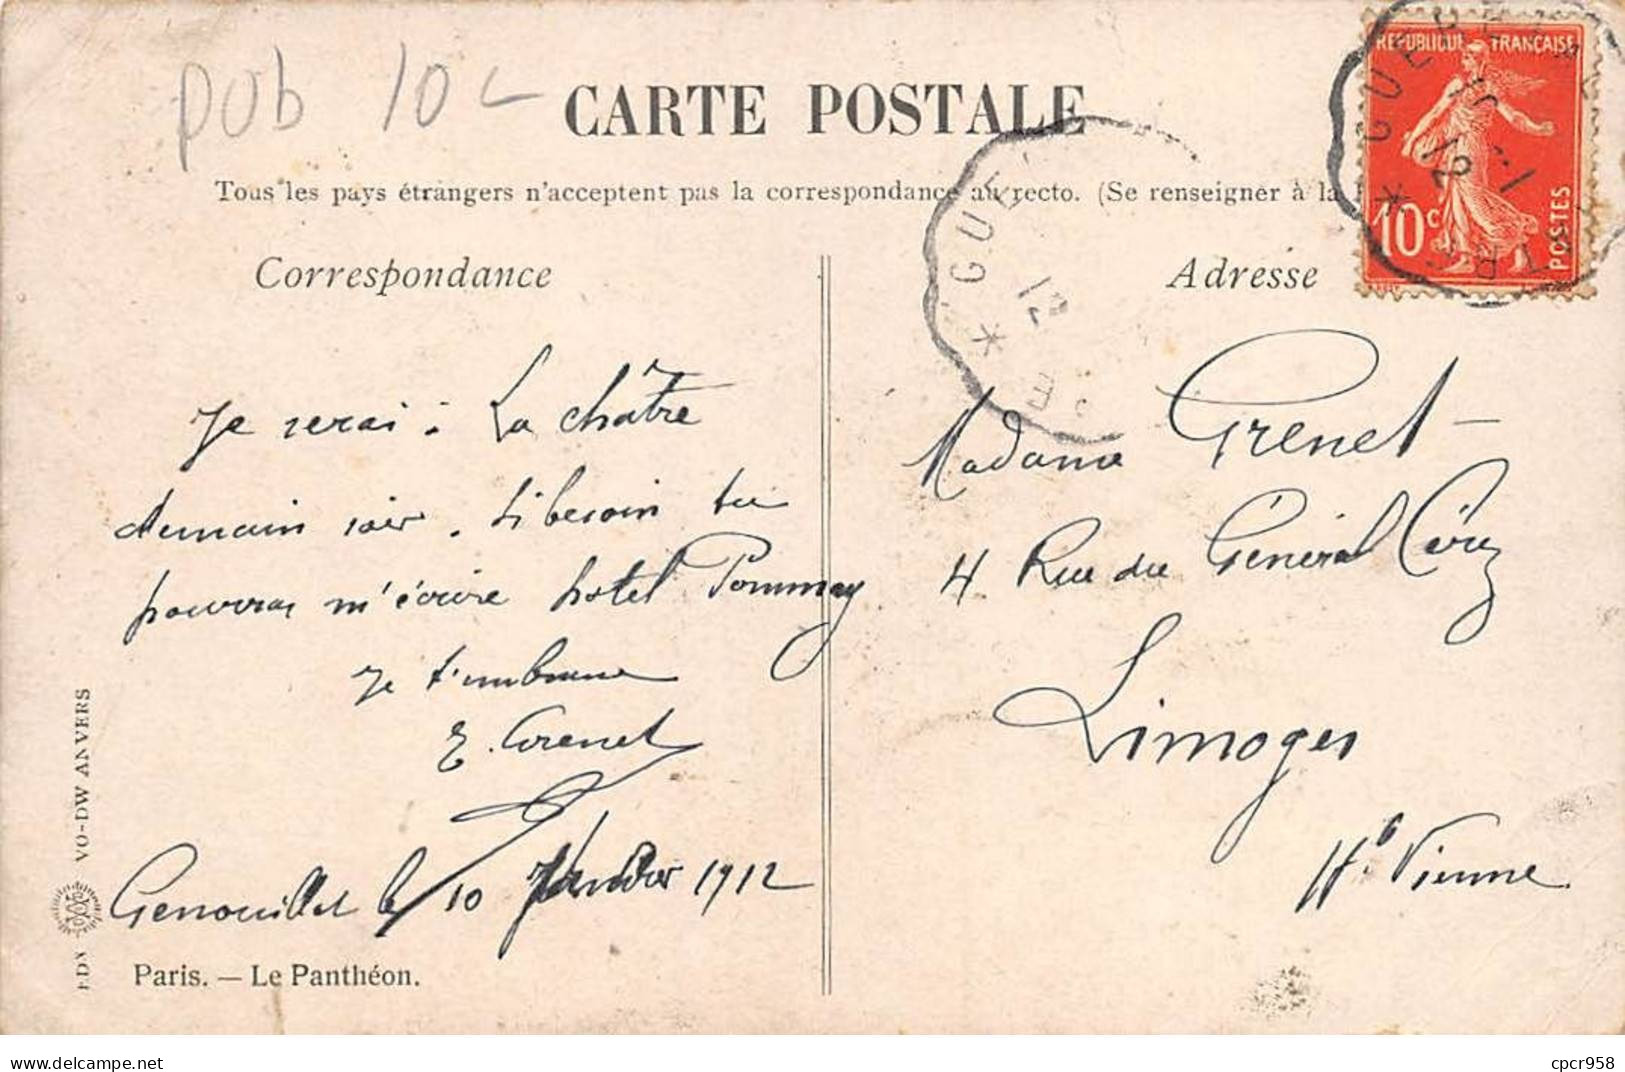 pub 10
CARTE POSTALE
REPUBLIQUE FRANCAISE
10c
POSTES
Tous les pays étrangers n'acceptent pas la correspondance au recto. (Se renseigner à la
GUE
12
GUER
12
Correspondance
Adresse
Je serai à La châtre
demain soir. Si besoin tu
pourras m'écrire hotel Pommay
Je t'embrasse
E. Grenet
Genouillat le 10 Janvier 1912
Madame Grenet
4 Rue du Général Cérez
Limoges
Hte Vienne
Paris. — Le Panthéon.
EDS VO-DW ANVERS
delcampe.net
cpcr958